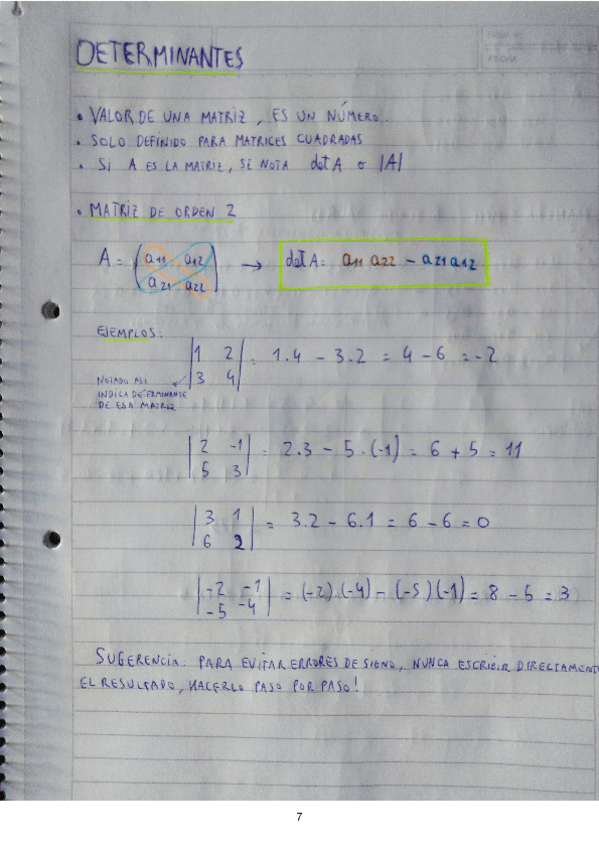 DETERMINANTES
• VALOR DE UNA MATRIZ, ES UN NÚMERO.
• SOLO DEFINIDO PARA MATRICES CUADRADAS
• SI A ES LA MATRIZ, SE NOTA det A o |A|
• MATRIZ DE ORDEN 2
A = ( a11 a12 → det A = a11 a22 - a21 a12
a21 a22 )
EJEMPLOS:
|1 2| = 1.4 - 3.2 = 4 - 6 = -2
|3 4|
NOTADO ASI
INDICA DETERMINANTE
DE ESA MATRIZ
|2 -1| = 2.3 - 5.(-1) = 6 + 5 = 11
|5 3|
|3 1| = 3.2 - 6.1 = 6 - 6 = 0
|6 2|
|-2 -1| = (-2).(-4) - (-5)(-1) = 8 - 5 = 3
|-5 -4|
SUGERENCIA: PARA EVITAR ERRORES DE SIGNO, NUNCA ESCRIBIR DIRECTAMENT
EL RESULTADO, HACERLO PASO POR PASO!
7